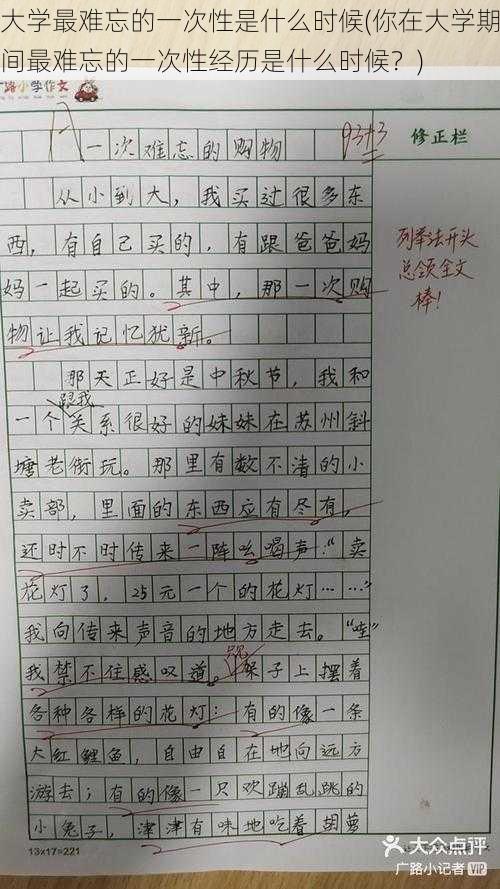 大学最难忘的一次性是什么时候(你在大学期
间最难忘的一次性经历是什么时候？)
广路小学作文
A
93+3
一次难忘的购物
修正栏
从小到大，我买过很多东
西，有自己买的，有跟爸爸妈
妈一起买的。其中，那一次购
物让我记忆犹新。
列举法开头
总领全文
棒！
那天正好是中秋节，我和
跟我
一个关系很好的妹妹在苏州斜
塘老街玩。那里有数不清的小
卖部，里面的东西应有尽有，
还时不时传来一阵吆喝声：“卖
花灯了，25元一个的花灯……”
我向传来声音的地方走去。“哇”
我禁不住感叹道。架子上摆着
各种各样的花灯：有的像一条
大红鲤鱼，自由自在地向远方
游去；有的像一只欢蹦乱跳的
小兔子，津津有味地吃着胡萝
13×17=221
大众点评
广路小记者 VIP